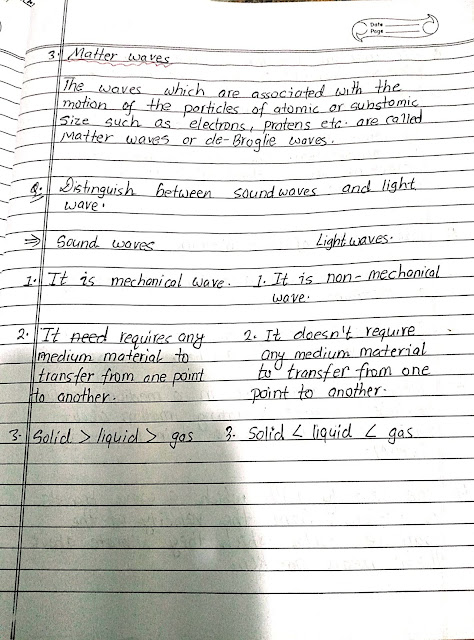 Date
Page
3. Matter waves
The waves which are associated with the
motion of the particles of atomic or substomic
size such as electrons, protens etc. are called
Matter waves or de-Broglie waves.
Q. Distinguish between sound waves and light
wave.
⇒ Sound waves Light waves.
1. It is mechanical wave. 1. It is non-mechanical
wave.
2. It need requires any 2. It doesn't require
medium material to any medium material
transfer from one point to transfer from one
to another. point to another.
3. Solid > liquid > gas 3. Solid < liquid < gas